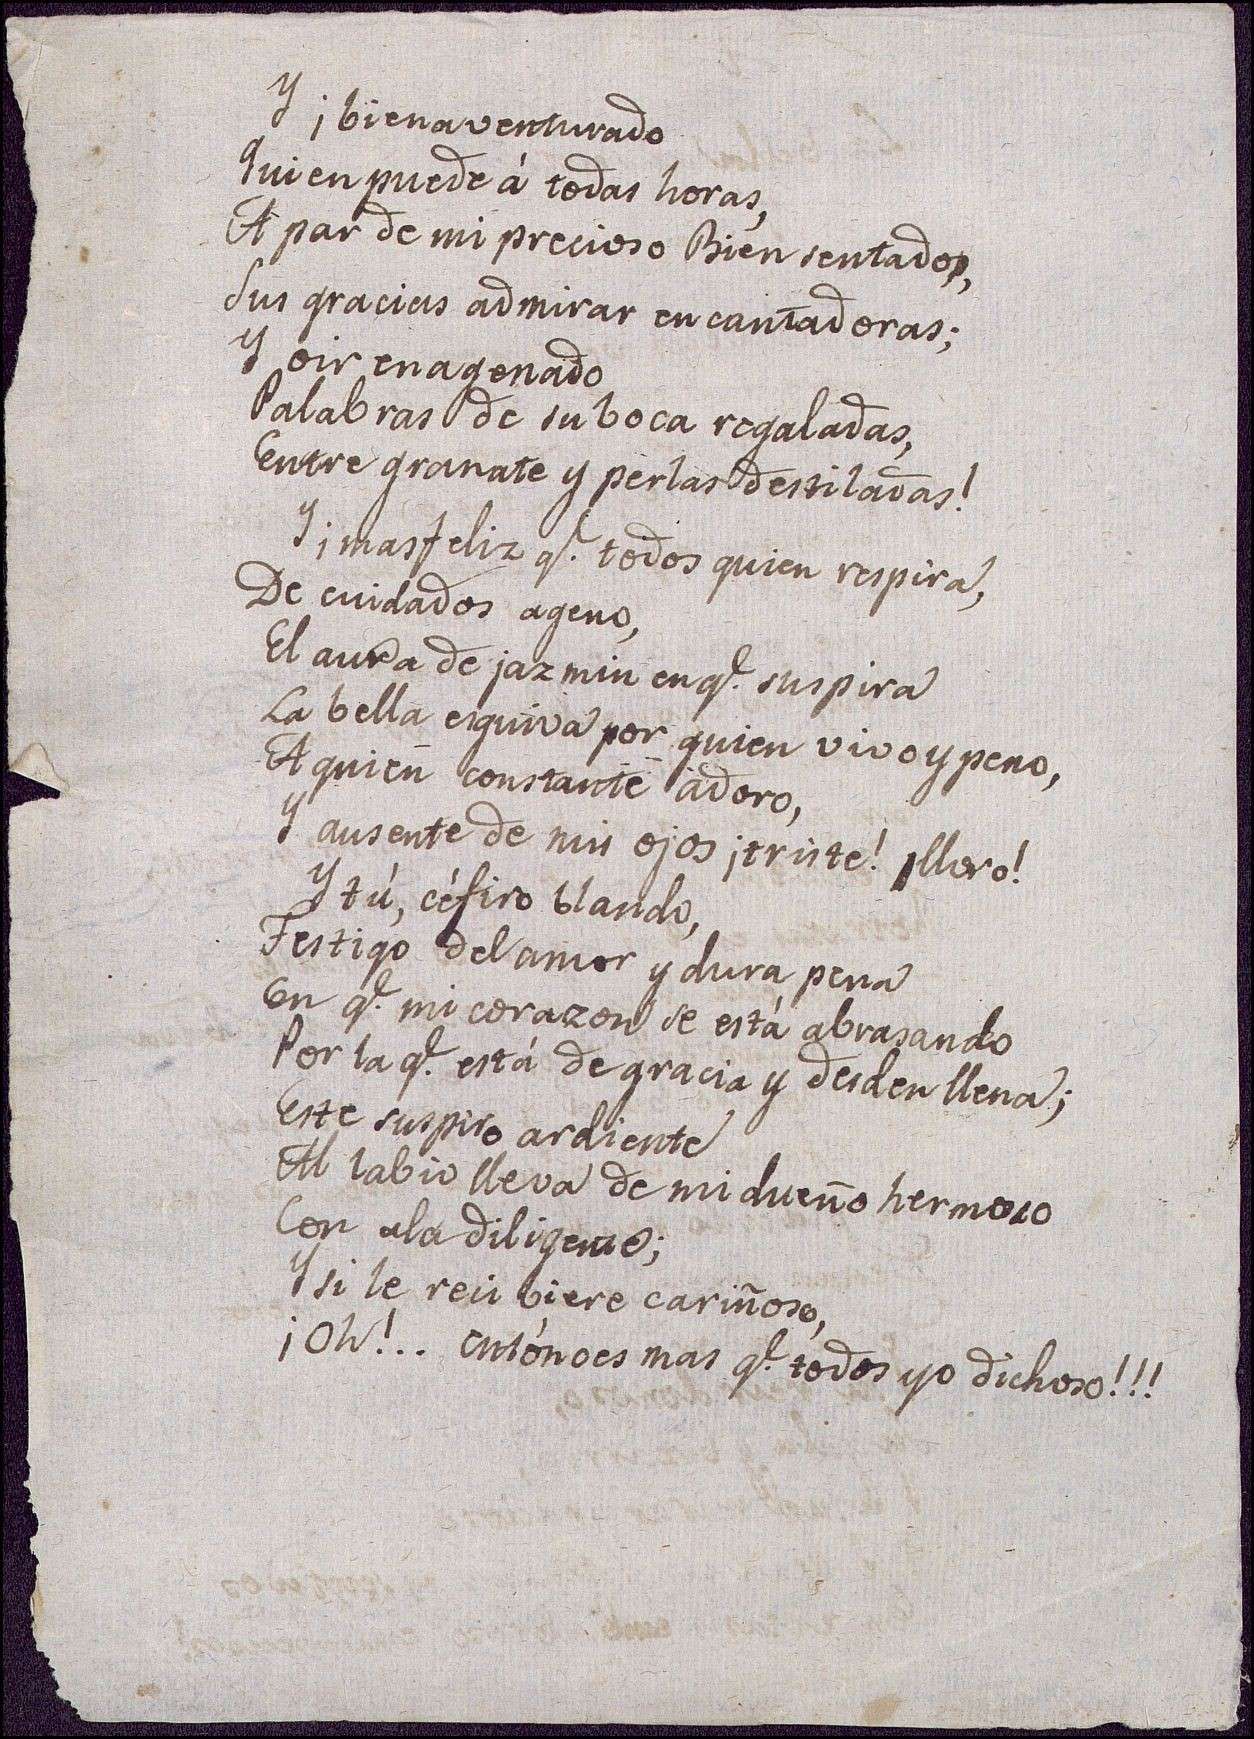 Y ¡bienaventurado
Quien puede á todas horas,
A par de mi precioso Bien sentado,
Sus gracias admirar encantadoras;
Y oir enagenado
Palabras de su boca regaladas,
Entre granate y perlas destiladas!
Y ¡mas feliz q.e todos quien respira,
De cuidados ageno,
El aura de jazmin en q.e suspira
La bella esquiva por quien vivo y peno,
A quien constante adoro,
Y ausente de mis ojos ¡triste! ¡lloro!
Y tú, céfiro blando,
Testigo del amor y dura pena
En q.e mi corazon se está abrasando
Por la q.e está de gracia y desden llena;
Este suspiro ardiente
Al labio lleva de mi dueño hermoso
Con ala diligente;
Y si le recibiere cariñoso,
¡Oh!... entónces mas q.e todos yo dichoso!!!